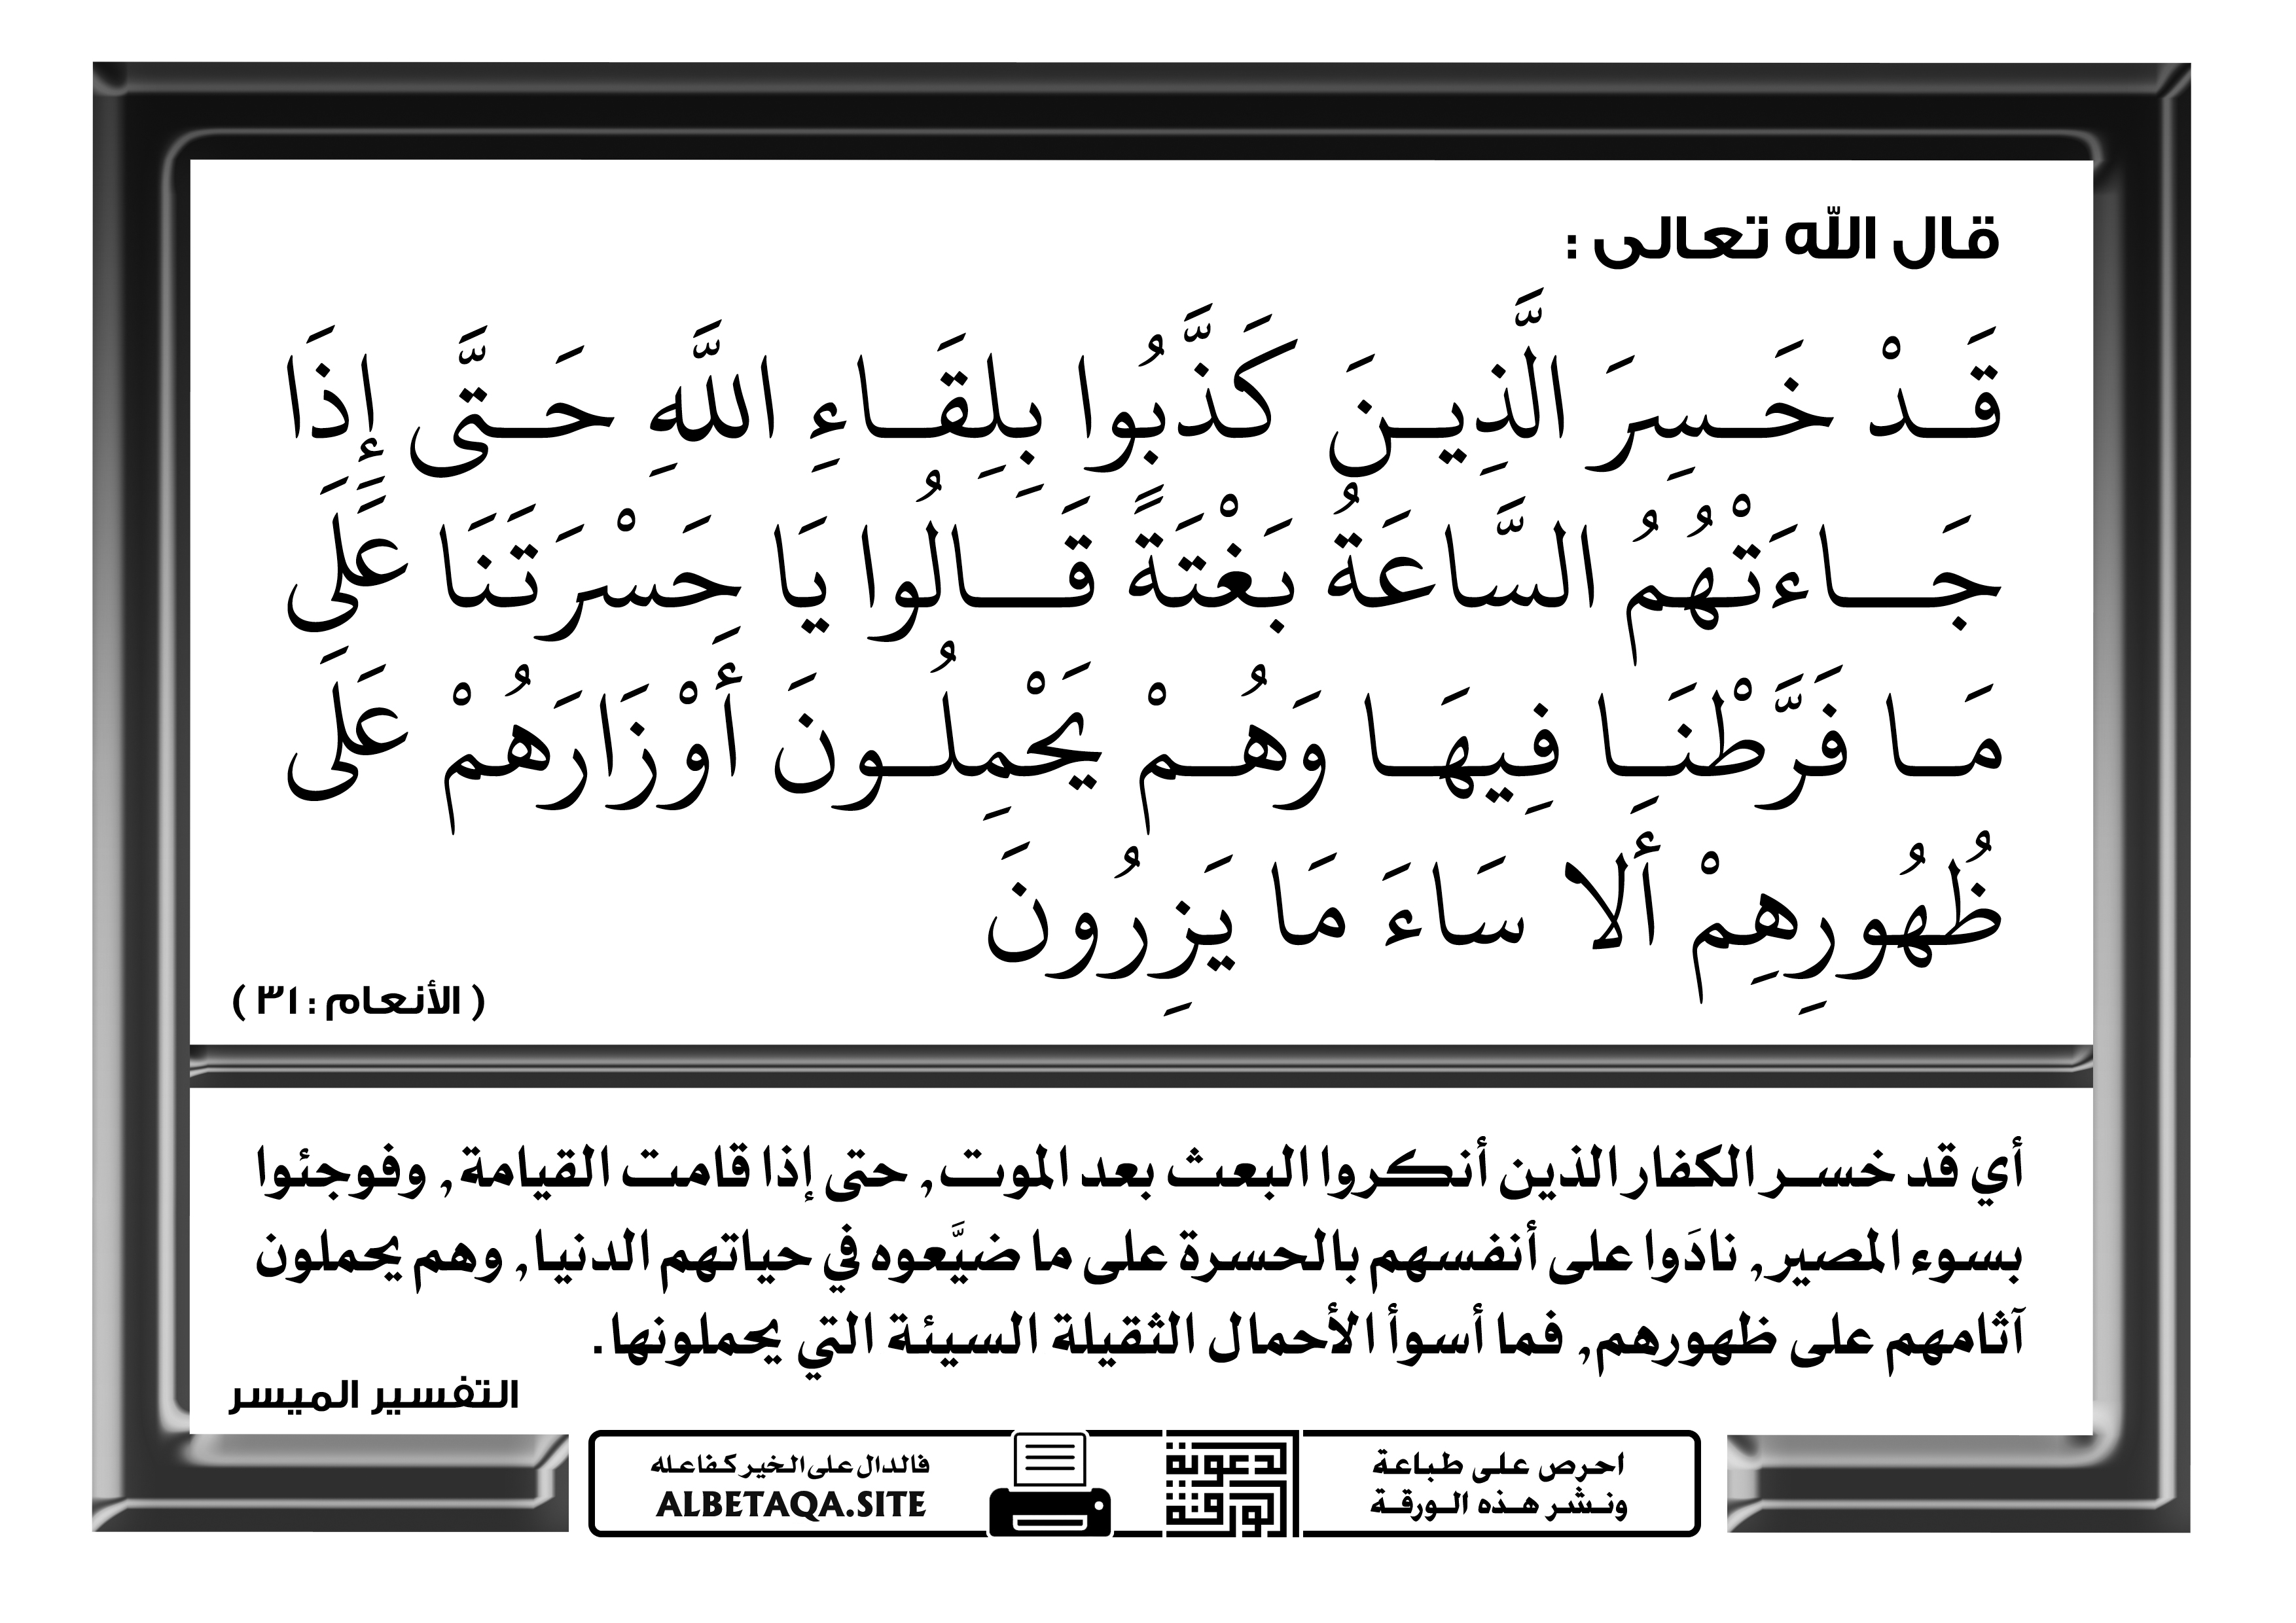 قال الله تعالى :
قَـدْ خَـسِرَ الَّذِيـنَ كَذَّبُوا بِلِقَـاءِ اللَّهِ حَـتَّى إِذَا
جَـاءَتْهُمُ السَّاعَةُ بَغْتَةً قَـالُوا يَا حَسْرَتَنَا عَلَى
مَـا فَرَّطْنَـا فِيهَـا وَهُـمْ يَحْمِلُـونَ أَوْزَارَهُمْ عَلَى
ظُهُورِهِمْ أَلا سَاءَ مَا يَزِرُونَ
( الأنعام : ٣١ )
أي قد خسـر الكفار الذين أنكروا البعث بعد الموت, حتى إذا قامت القيامة, وفوجئوا
بسوء المصير, نادَوا على أنفسهم بالحسرة على ما ضيَّعوه في حياتهم الدنيا, وهم يحملون
آثامهم على ظهورهم, فما أسوأ الأحمال الثقيلة السيئة التي يحملونها.
التفسير الميسر
احرص على طباعة
ونشر هذه الورقة
الدعوية
الورقية
فالدال على الخير كفاعله
ALBETAQA.SITE